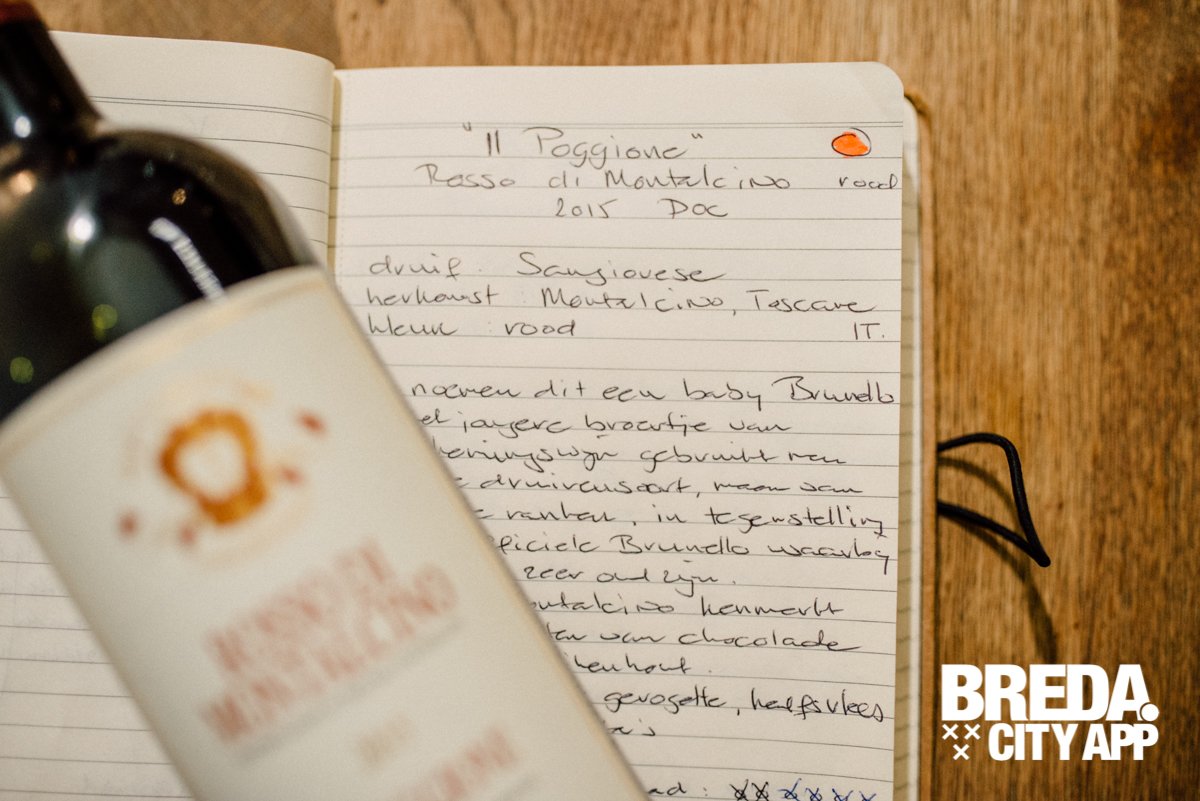 "Il Poggione"
Rosso di Montalcino rood
2015 DOC
druif : Sangiovese
herkomst : Montalcino, Toscane
kleur : rood IT.
noemen dit een baby Brunello
jongere broertje van
gebruikt men
druivensoort, maar van
ranken, in tegenstelling
Brunello waarbij
zeer oud zijn.
kenmerkt
van chocolade
eikenhout.
gevogelte, kalfsvlees
ROSSO DI
MONTALCINO
BREDA.
CITY APP